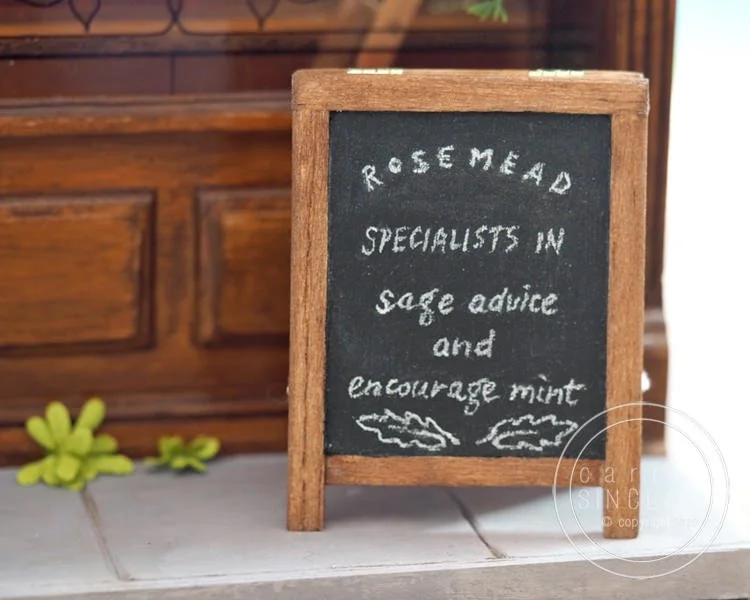 ROSEMEAD
SPECIALISTS IN
sage advice
and
encourage mint
© copyright